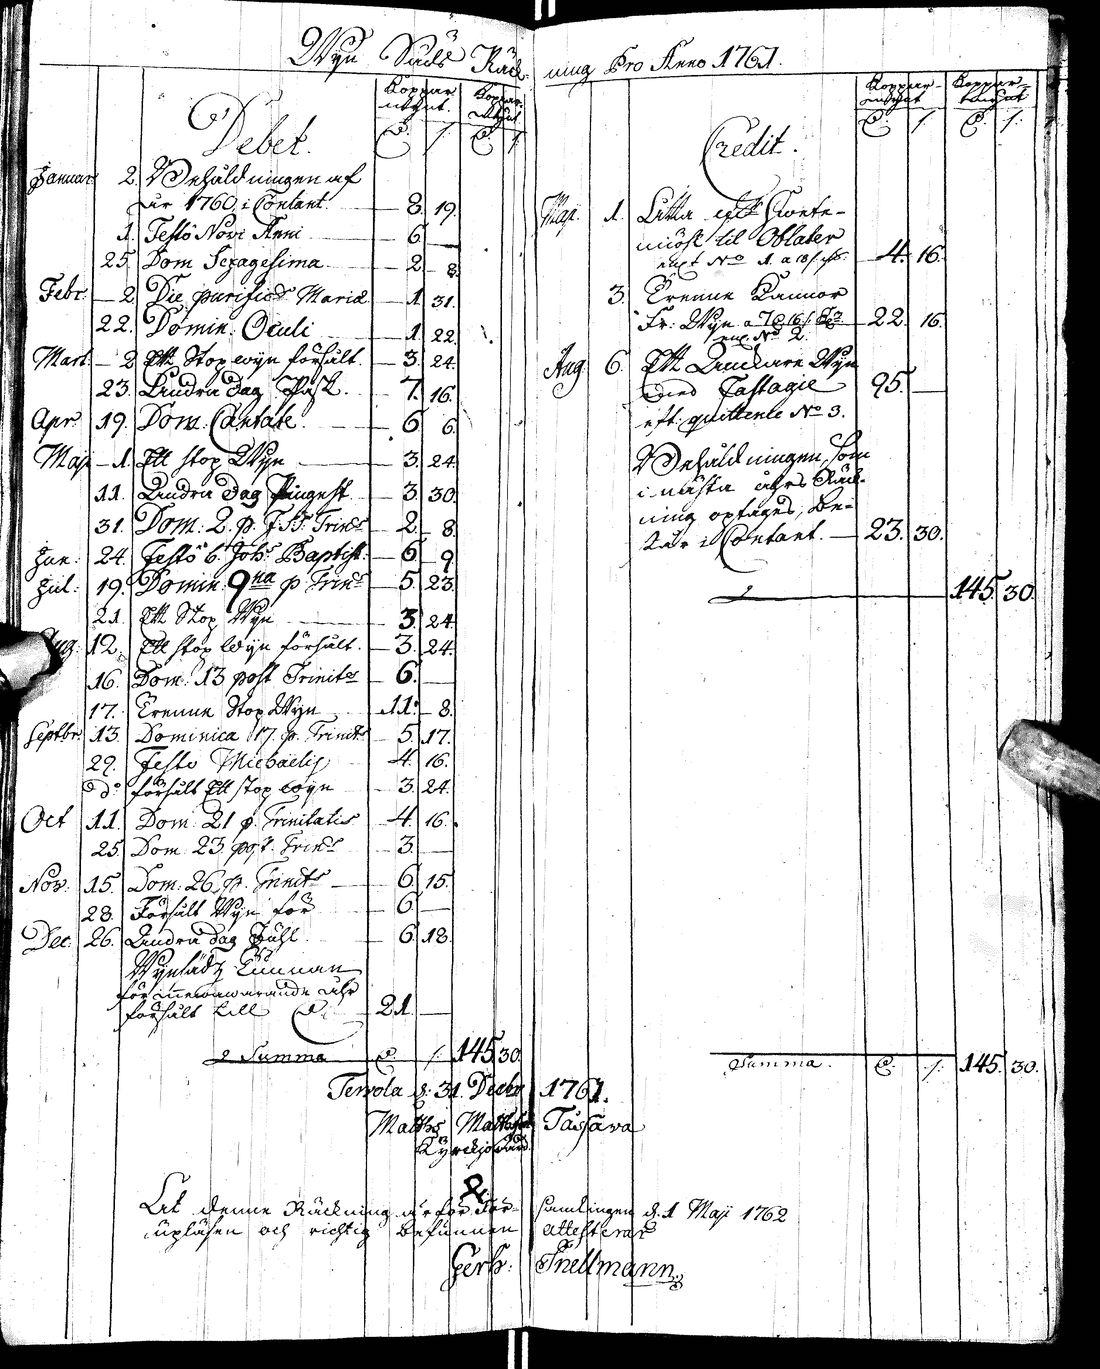 Wyn Siäls Räk-
ning Pro Anno 1761.
Debet.
Koppar mynt. Koppar mynt
Januar 2. Behåldningen af
åhr 1760, i Contant. 8. 19.
1. Festo Novi Anni 6
25. Dom Sexagesima 2 8.
Febr. 2 Die purificas Mariæ 1 31.
22. Domin: Oculi 1 22.
Mart. 2 Ett Stop wyn försålt. 3. 24.
23. Andra dag Påsk. 7. 16.
Apr. 19. Dom. Cantate. 6 6.
Maji 1. Ett stop Wyn 3. 24
11. Andra dag Pingest 3. 30
31. Dom. 2. p. F. SS. Trinits 2 8.
Jun. 24. Festo b. Johs Baptist. 6 9
Jul. 19. Domin. 9na p Trints 5. 23.
21. Ett Stop Wyn 3. 24.
Aug. 12. Ett stop Wyn försålt. 3. 24.
16. Dom. 13 post Trinits 6.
17. Trenne Stop Wyn 11. 8.
Septbr. 13. Dominica 17. p. Trinits 5. 17.
29. Festo Michaelis 4. 16.
do försålt Ett stop wyn 3. 24.
Oct 11. Dom. 21 p. Trinitatis 4. 16.
25. Dom. 23. post. Trints 3.
Nov. 15. Dom. 26. p. Trinits 6 15.
28. Försålt Wyn för 6
Dec. 26. Andra dag Juhl. 6. 18.
för innewarande åhr
försålt till 21.
Summa 145 30.
Credit.
Koppar mynt Koppar mynt
Maji. 1. til Oblater
enl No 1. 4. 16.
3. Trenne Kannor
Fr: Wyn 22. 16.
enl No 2.
Aug. 6. Ett Anckare Wyn
med Fastagie 95.
eft. quittence No 3.
Behåldningen, som
i nästa åhrs Räk-
ning optages, be-
står i Contant. 23. 30.
145. 30.
Summa. 145. 30.
Tervola d: 31. Decbr 1761.
Matths Mattsson Tassawa
Kyrckiowärd.
At denne Räckning är för För-samlingen d. 1 Maji 1762
upläsen och richtig befunnen attesterar
Gerh: Snellmann